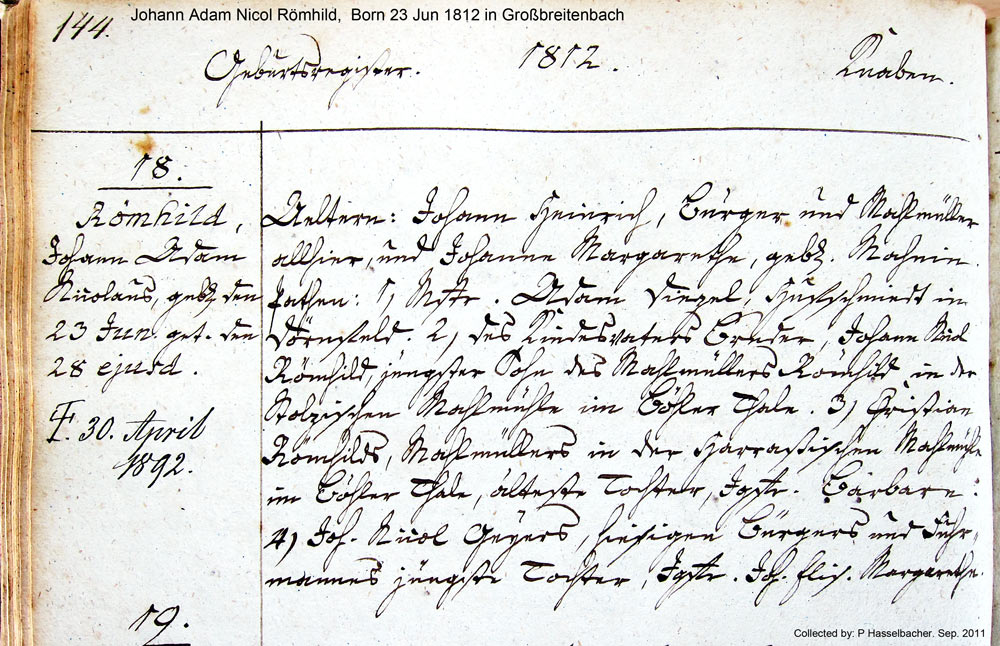 Johann Adam Nicol Römhild, Born 23 Jun 1812 in Großbreitenbach
144.
Geburtsregister. 1812. Knaben.
18.
Römhild,
Johann Adam
Nicolaus, geb. den
23 Jun. get. den
28 ejusd.
30. April
1892.
Aeltern: Johann Heinrich, Bürger und Mahlmüller
allhier, und Johanne Margarethe, geb.
Pathen: 1, Mstr. Adam Siegel, Hufschmiedt in
Dörnfeld. 2, des Kindesvaters Bruder, Johann Nicol
Römhild, jüngster Sohn des Mahlmüllers Römhild in der
Stolzischen Mahlmühle im Böhler Thale. 3) Christian
Römhilds, Mahlmüllers in der Harrassischen Mahlmühle
im Böhler Thale, älteste Tochter, Igfr. Barbare:
4) Joh. Nicol Geyers, hiesigen Bürgers und Fuhr-
mannes jüngste Tochter, Igfr. Joh. Elis. Margarethe.
19.
Collected by: P Hasselbacher. Sep. 2011